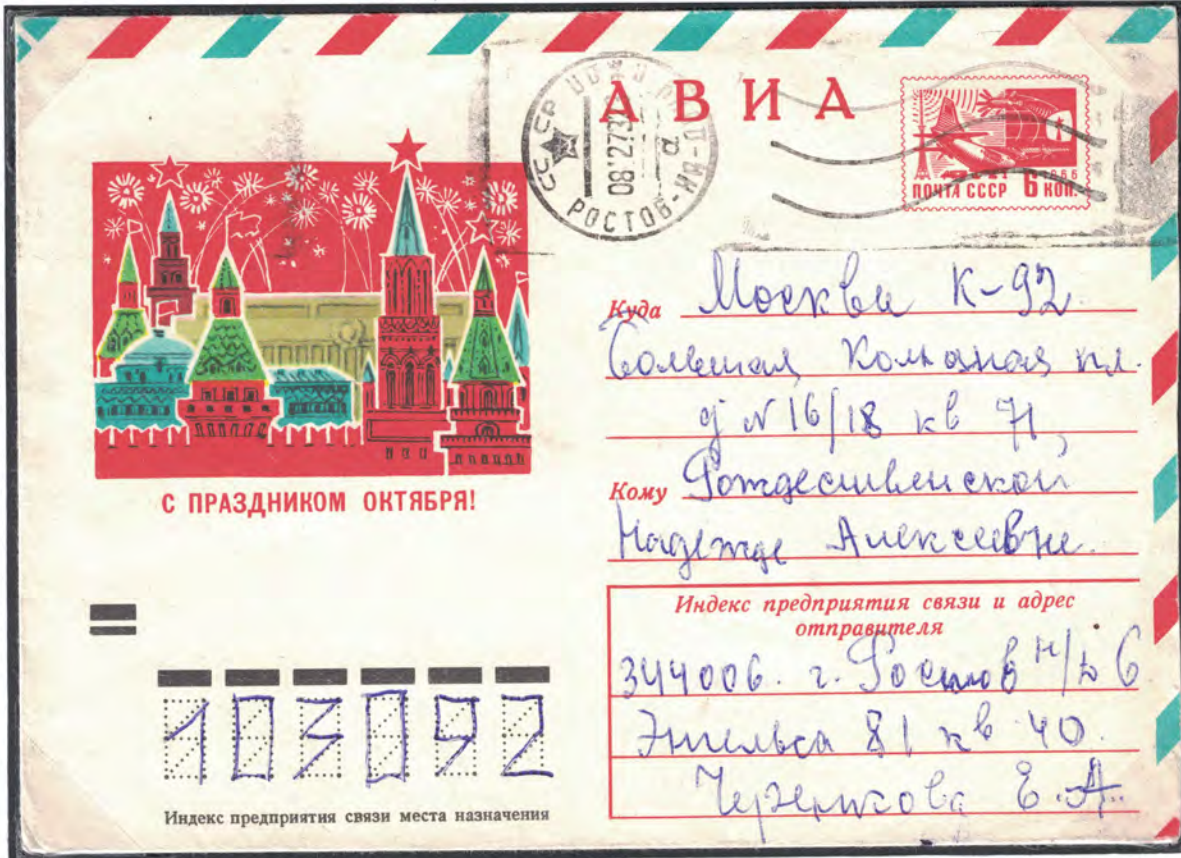 АВИА
ПОЧТА СССР 6 КОП.
СССР
РОСТОВ-НА-Д
С ПРАЗДНИКОМ ОКТЯБРЯ!
Куда Москва К-92.
Большая Колхозная пл.
д № 16/18 кв 71,
Кому Рождественской
Надежде Алексеевне.
Индекс предприятия связи и адрес
отправителя
344006. г. Ростов н/Д 6
Энгельса 81 кв 40.
Е.А.
103092
Индекс предприятия связи места назначения